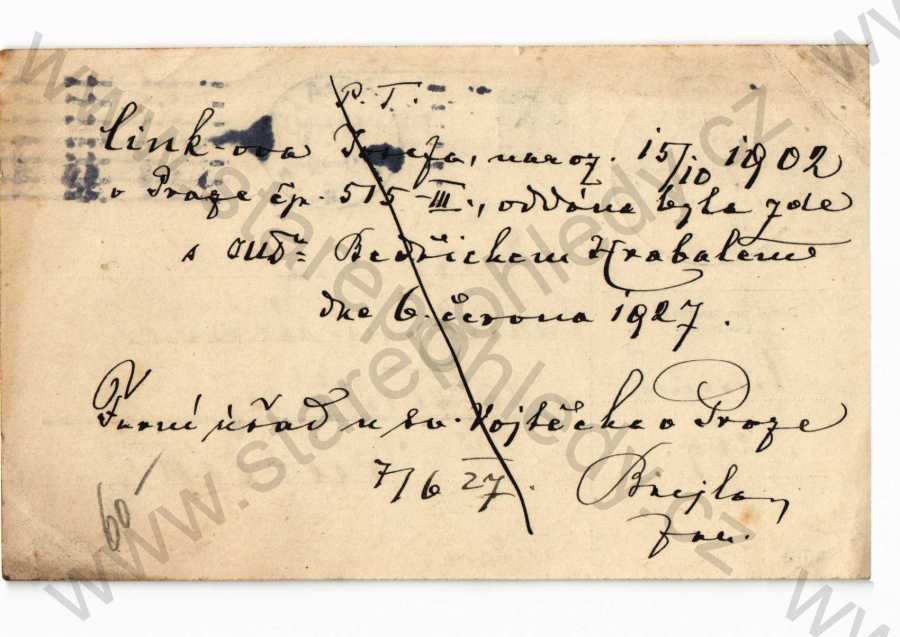 P. T.
Cink-ova Josefa, naroz. 15/10 1902
v Praze čp. 515 III., oddána byla zde
s Bedřichem Hrabalem
dne 6. června 1927.
Farní úřad u sv. Vojtěcha v Praze
7/6 27.
far.
60 –
www.starepohledy.cz
www.starepohledy.cz